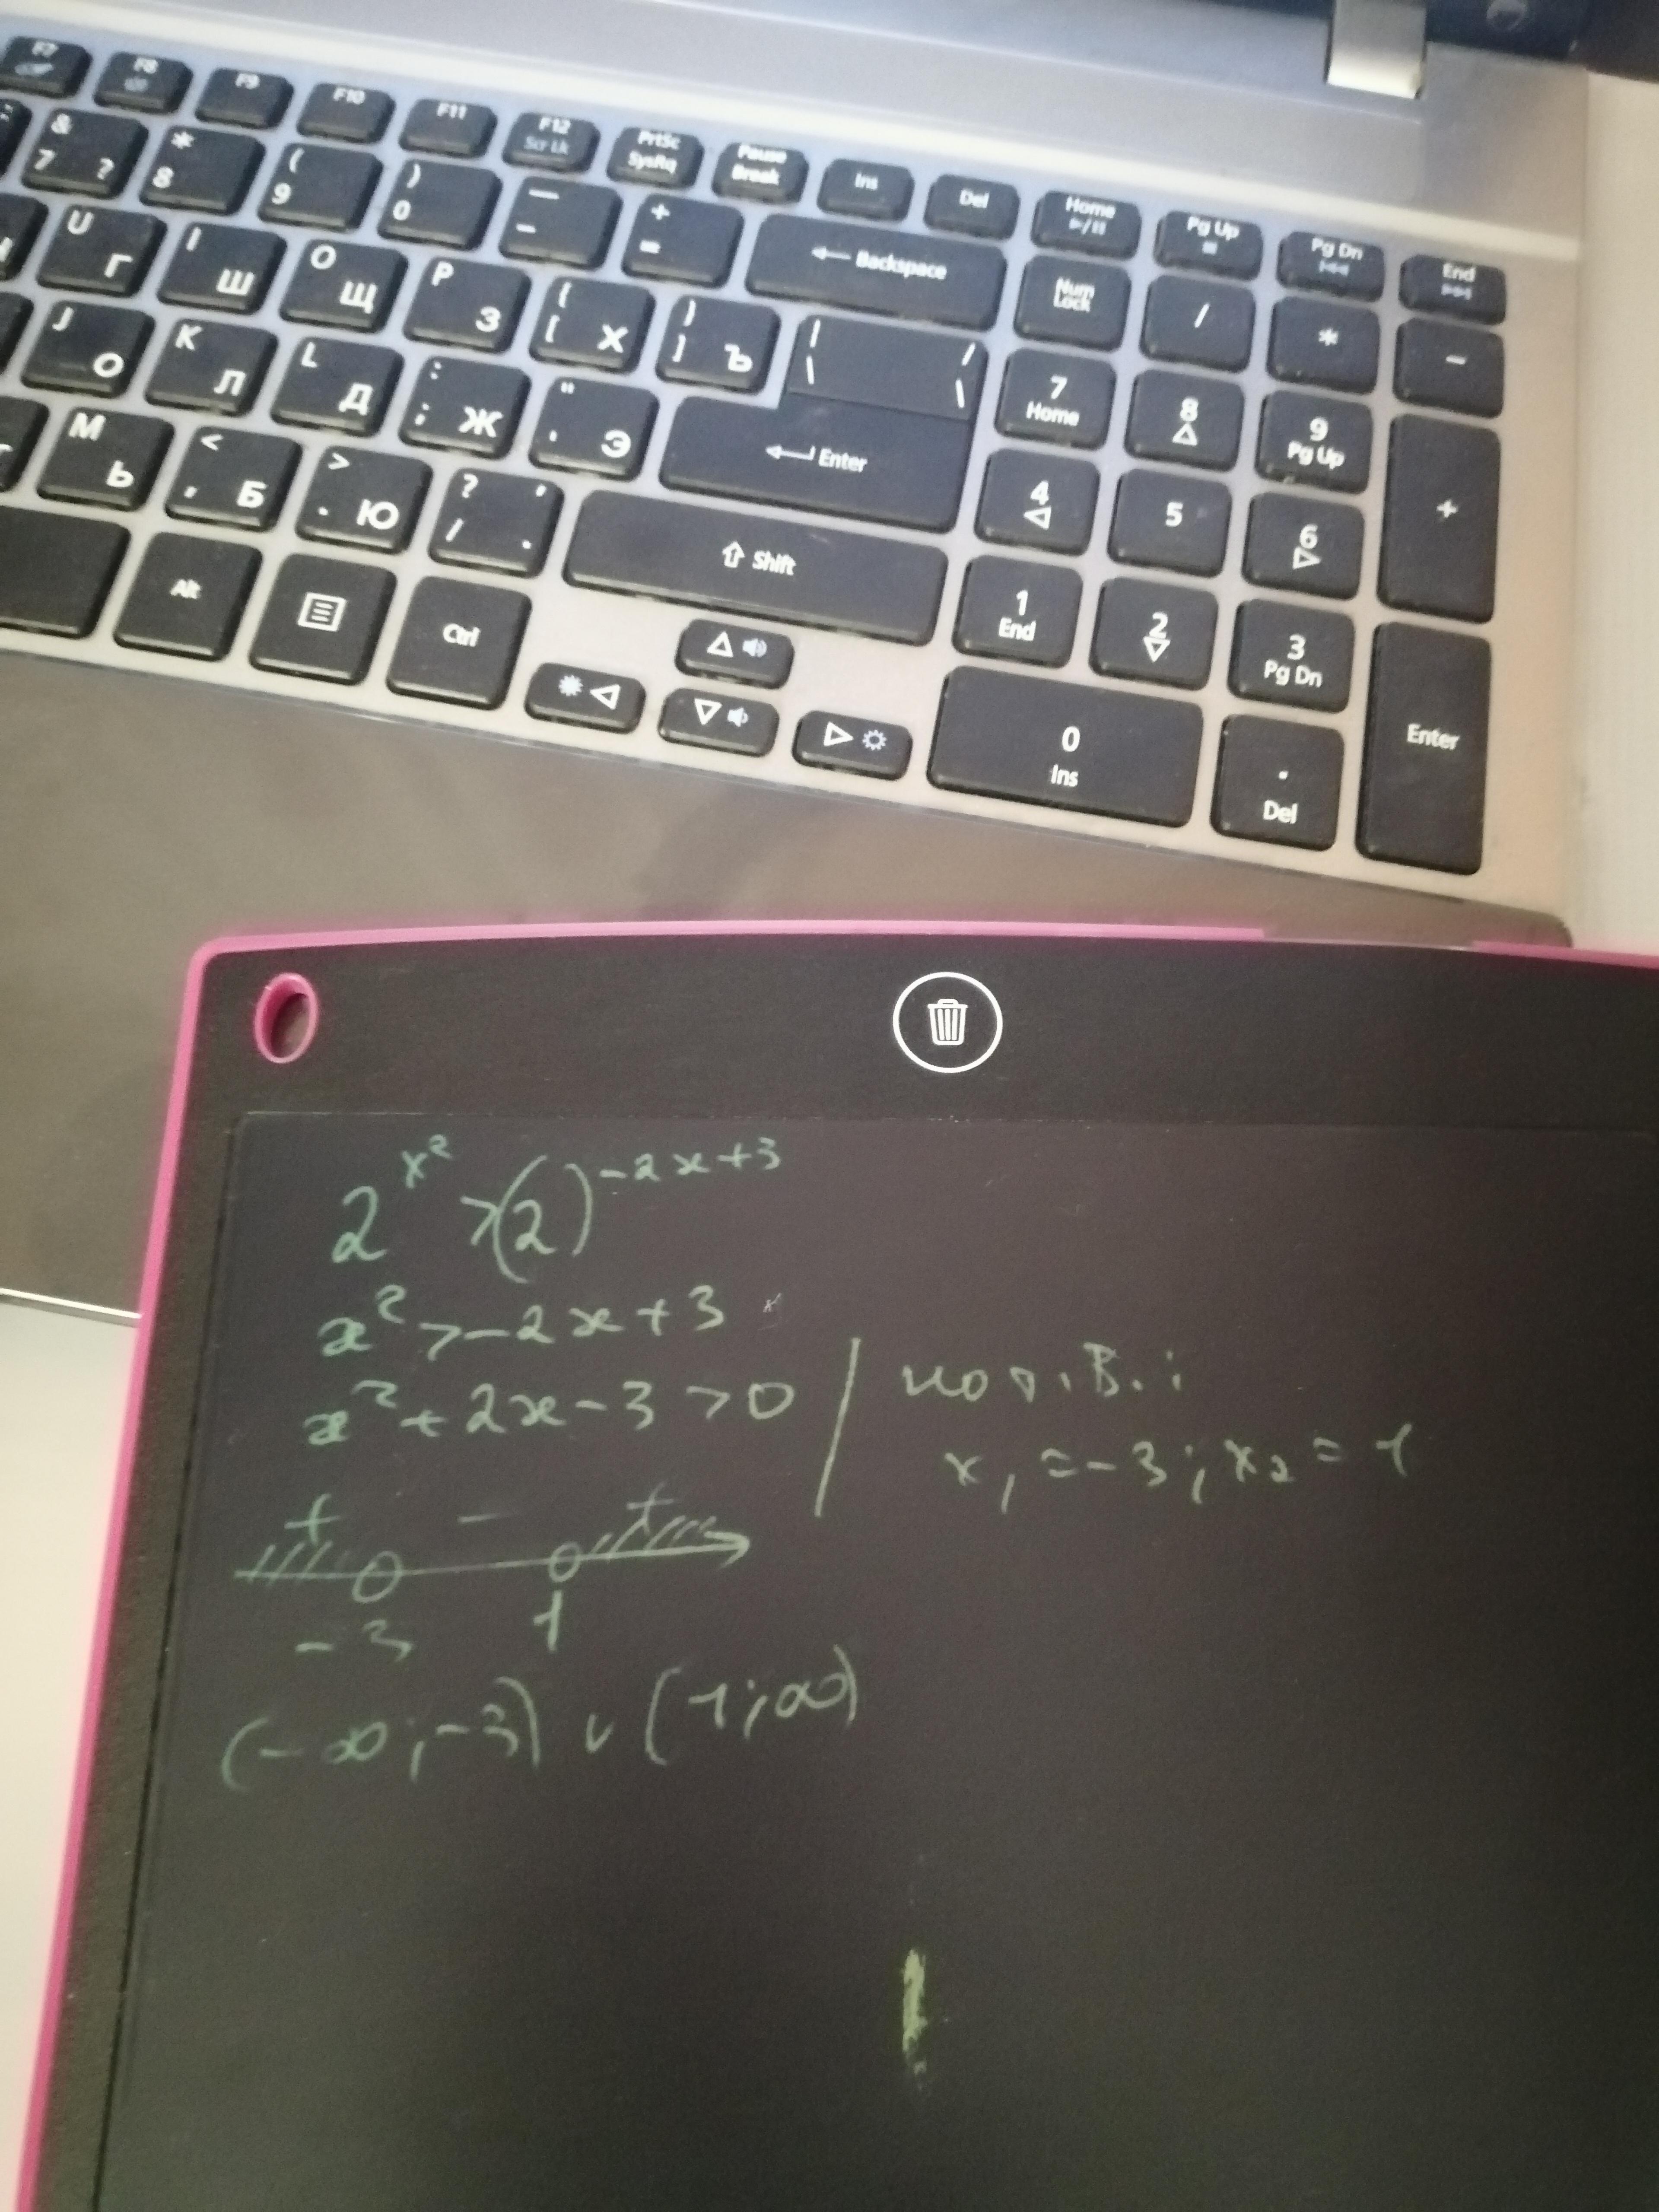 F7 F8 F9 F10 F11 F12 Scr Lk PrtSc SysRq Pause Break Ins Del Home Pg Up Pg Dn End
& 7 ? * 8 ( 9 ) 0 — - + = ← Backspace Num Lock / * −
U Г I Ш O Щ P З { [ Х } ] Ъ | \ / \ 7 Home 8 9 Pg Up +
J О K Л L Д : ; Ж " ' Э Enter 4 5 6
M Ь < , Б > . Ю ? / , . ⇧ Shift 1 End 2 3 Pg Dn Enter
Alt Ctrl 0 Ins . Del
2^x² > (2)^-2x+3
x² > -2x+3
x² + 2x - 3 > 0 | по т. В.:
x₁ = -3; x₂ = 1
+ − +
-3 1
(-∞; -3) ∪ (1; ∞)